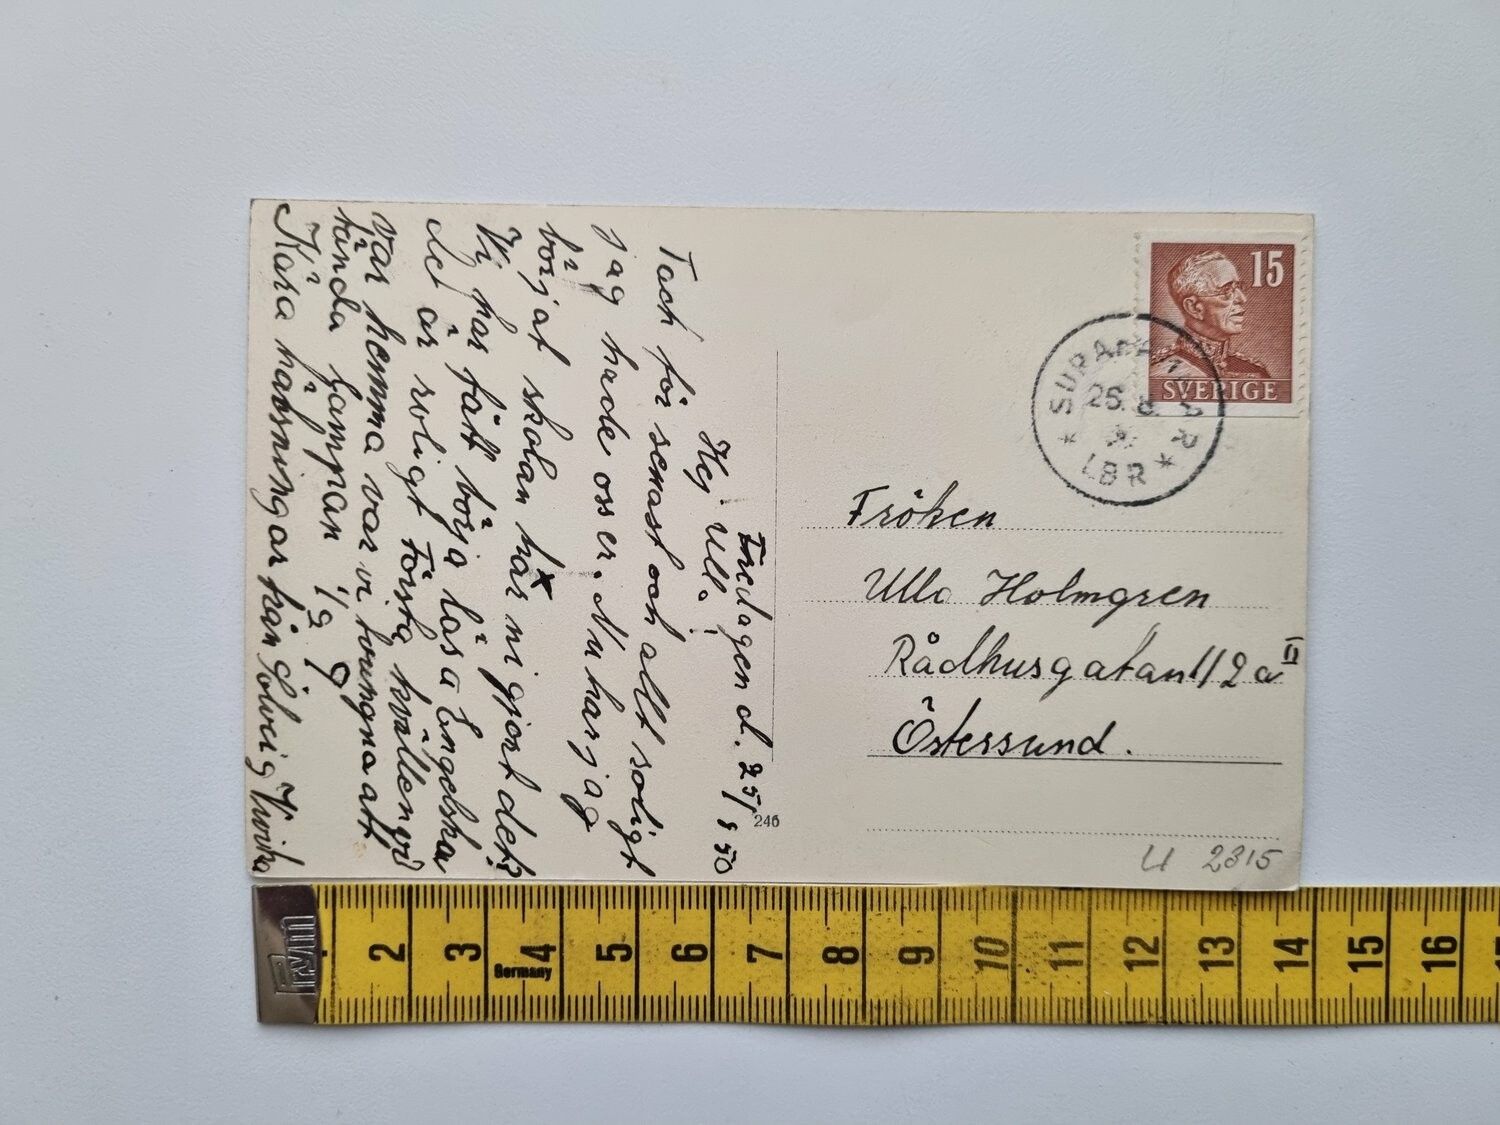 Fredagen d. 25/8 50
Hej Ulla!
Tack för senast och allt roligt
jag hade oss er. Nu har jag
börjat skolan här ni gjort det?
Vi har fått börja läsa Engelska
det är roligt Första kvällen vi
var hemma var vi tvungna att
tända lampan
Kära hälsningar från Solveig
15
SVERIGE
26. 8.
LBR
Fröken
Ulla Holmgren
Rådhusgatan 112a II
Östersund.
246
U 2315
Prym
2 3 4 5 6 7 8 9 10 11 12 13 14 15 16
Germany